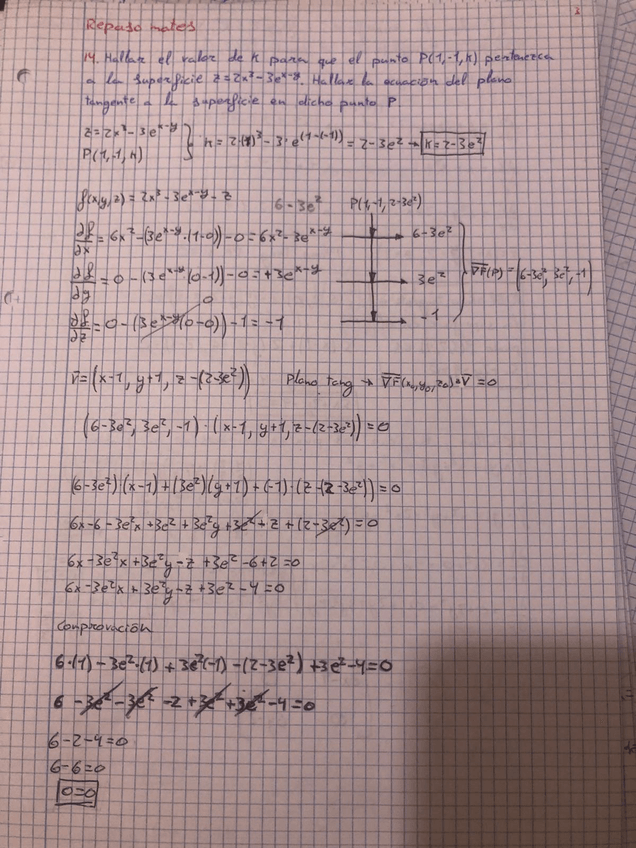 3
Repaso mates
14. Hallar el valor de k para que el punto P(1,-1,k) pertenezca
a la superficie z=2x³-3e^(x-y). Hallar la ecuación del plano
tangente a la superficie en dicho punto P
z=2x³-3e^(x-y) } k=2·(1)³-3·e^(1-(-1))=2-3e² → k=2-3e²
P(1,-1,k)
f(x,y,z)=2x³-3e^(x-y)-z 6-3e² P(1,-1,2-3e²)
∂f/∂x=6x²-(3e^(x-y)·(1-0))-0=6x²-3e^(x-y) → 6-3e²
∂f/∂y=0-(3e^(x-y)(0-1))-0=+3e^(x-y) → 3e² } ∇F(P)=(6-3e², 3e², -1)
0
∂f/∂z=0-(3e^(x-y)(0-0))-1=-1 → -1
v=(x-1, y+1, z-(2-3e²)) Plano tang → ∇F(x₀,y₀,z₀)·v=0
(6-3e², 3e², -1)·(x-1, y+1, z-(2-3e²))=0
(6-3e²)·(x-1)+(3e²)(y+1)+(-1)·(z-(2-3e²))=0
6x-6-3e²x+3e²+3e²y+3e²-z+(2-3e²)=0
6x-3e²x+3e²y-z+3e²-6+2=0
6x-3e²x+3e²y-z+3e²-4=0
Comprovación
6·(1)-3e²·(1)+3e²(-1)-(2-3e²)+3e²-4=0
6-3e²-3e²-2+3e²+3e²-4=0
6-2-4=0
6-6=0
0=0